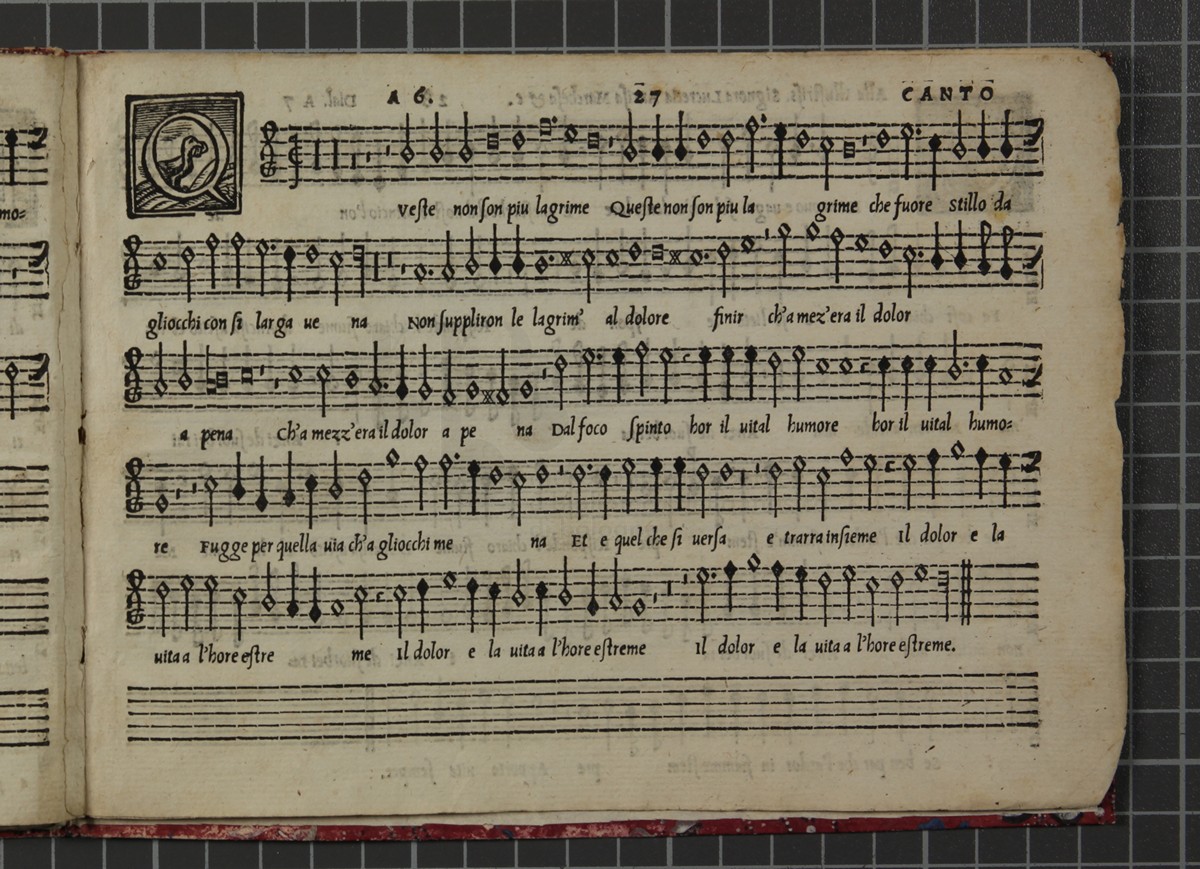 A 6. 27 CANTO
Q veſte non ſon piu lagrime Queſte non ſon piu la grime che fuore stillo da
gliocchi con ſi larga ue na Non ſuppliron le lagrim' al dolore finir ch'a mez'era il dolor
a pena Ch'a mezz'era il dolor a pe na Dal foco ſpinto hor il uital humore hor il uital humo=
re Fugge per quella uia ch'a gliocchi me na Et e quel che ſi uerſa e trarra inſieme Il dolor e la
uita a l'hore eſtre me Il dolor e la uita a l'hore eſtreme Il dolor e la uita a l'hore eſtreme.
mo=